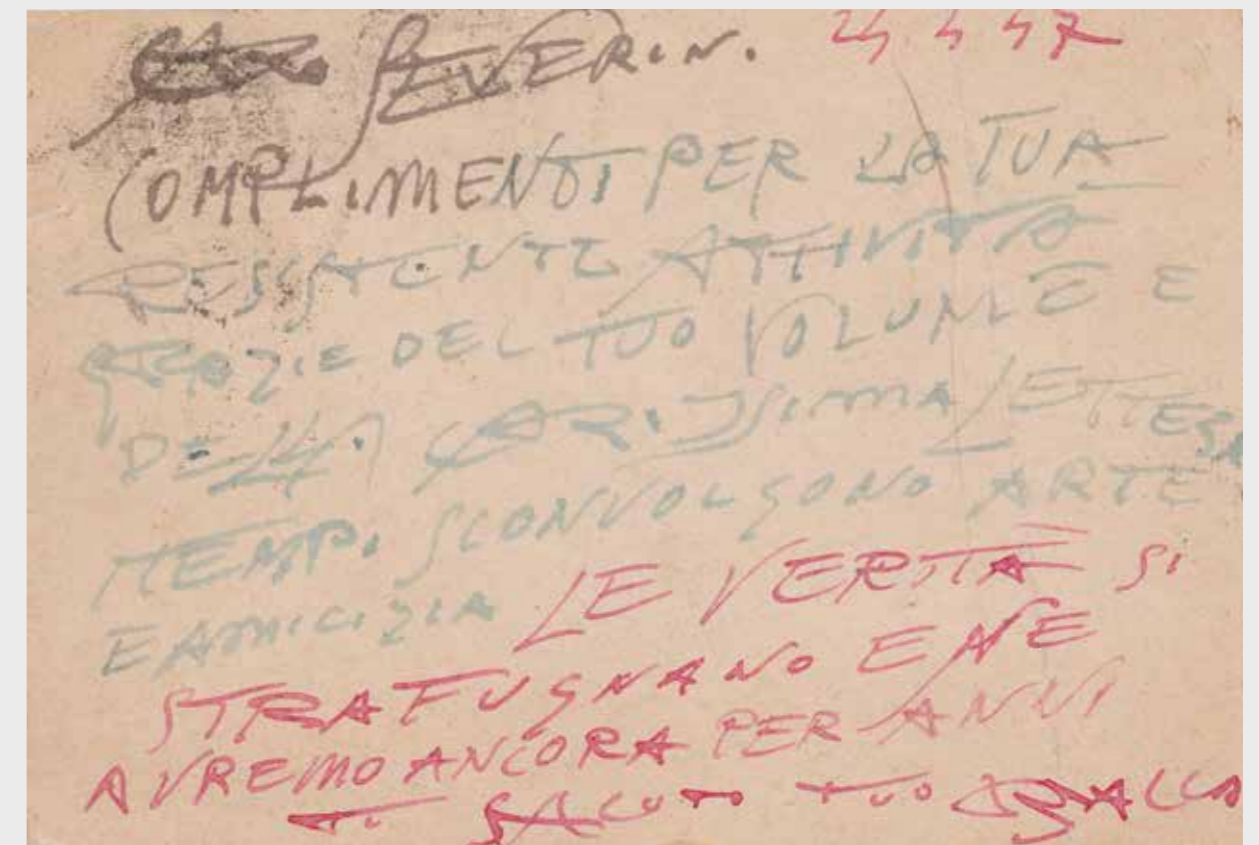 CARO SEVERIN. 24 4 47
COMPLIMENTI PER LA TUA
ATTIVITA
GRAZIE DEL TUO VOLUME E
DELLA CARISSIMA LETTERA
I TEMPI SCONVOLGONO ARTE
E AMICIZIA LE VERITÀ SI
STRAFUGNANO E NE
AVREMO ANCORA PER ANNI
TI SALUTO TUO BALLA